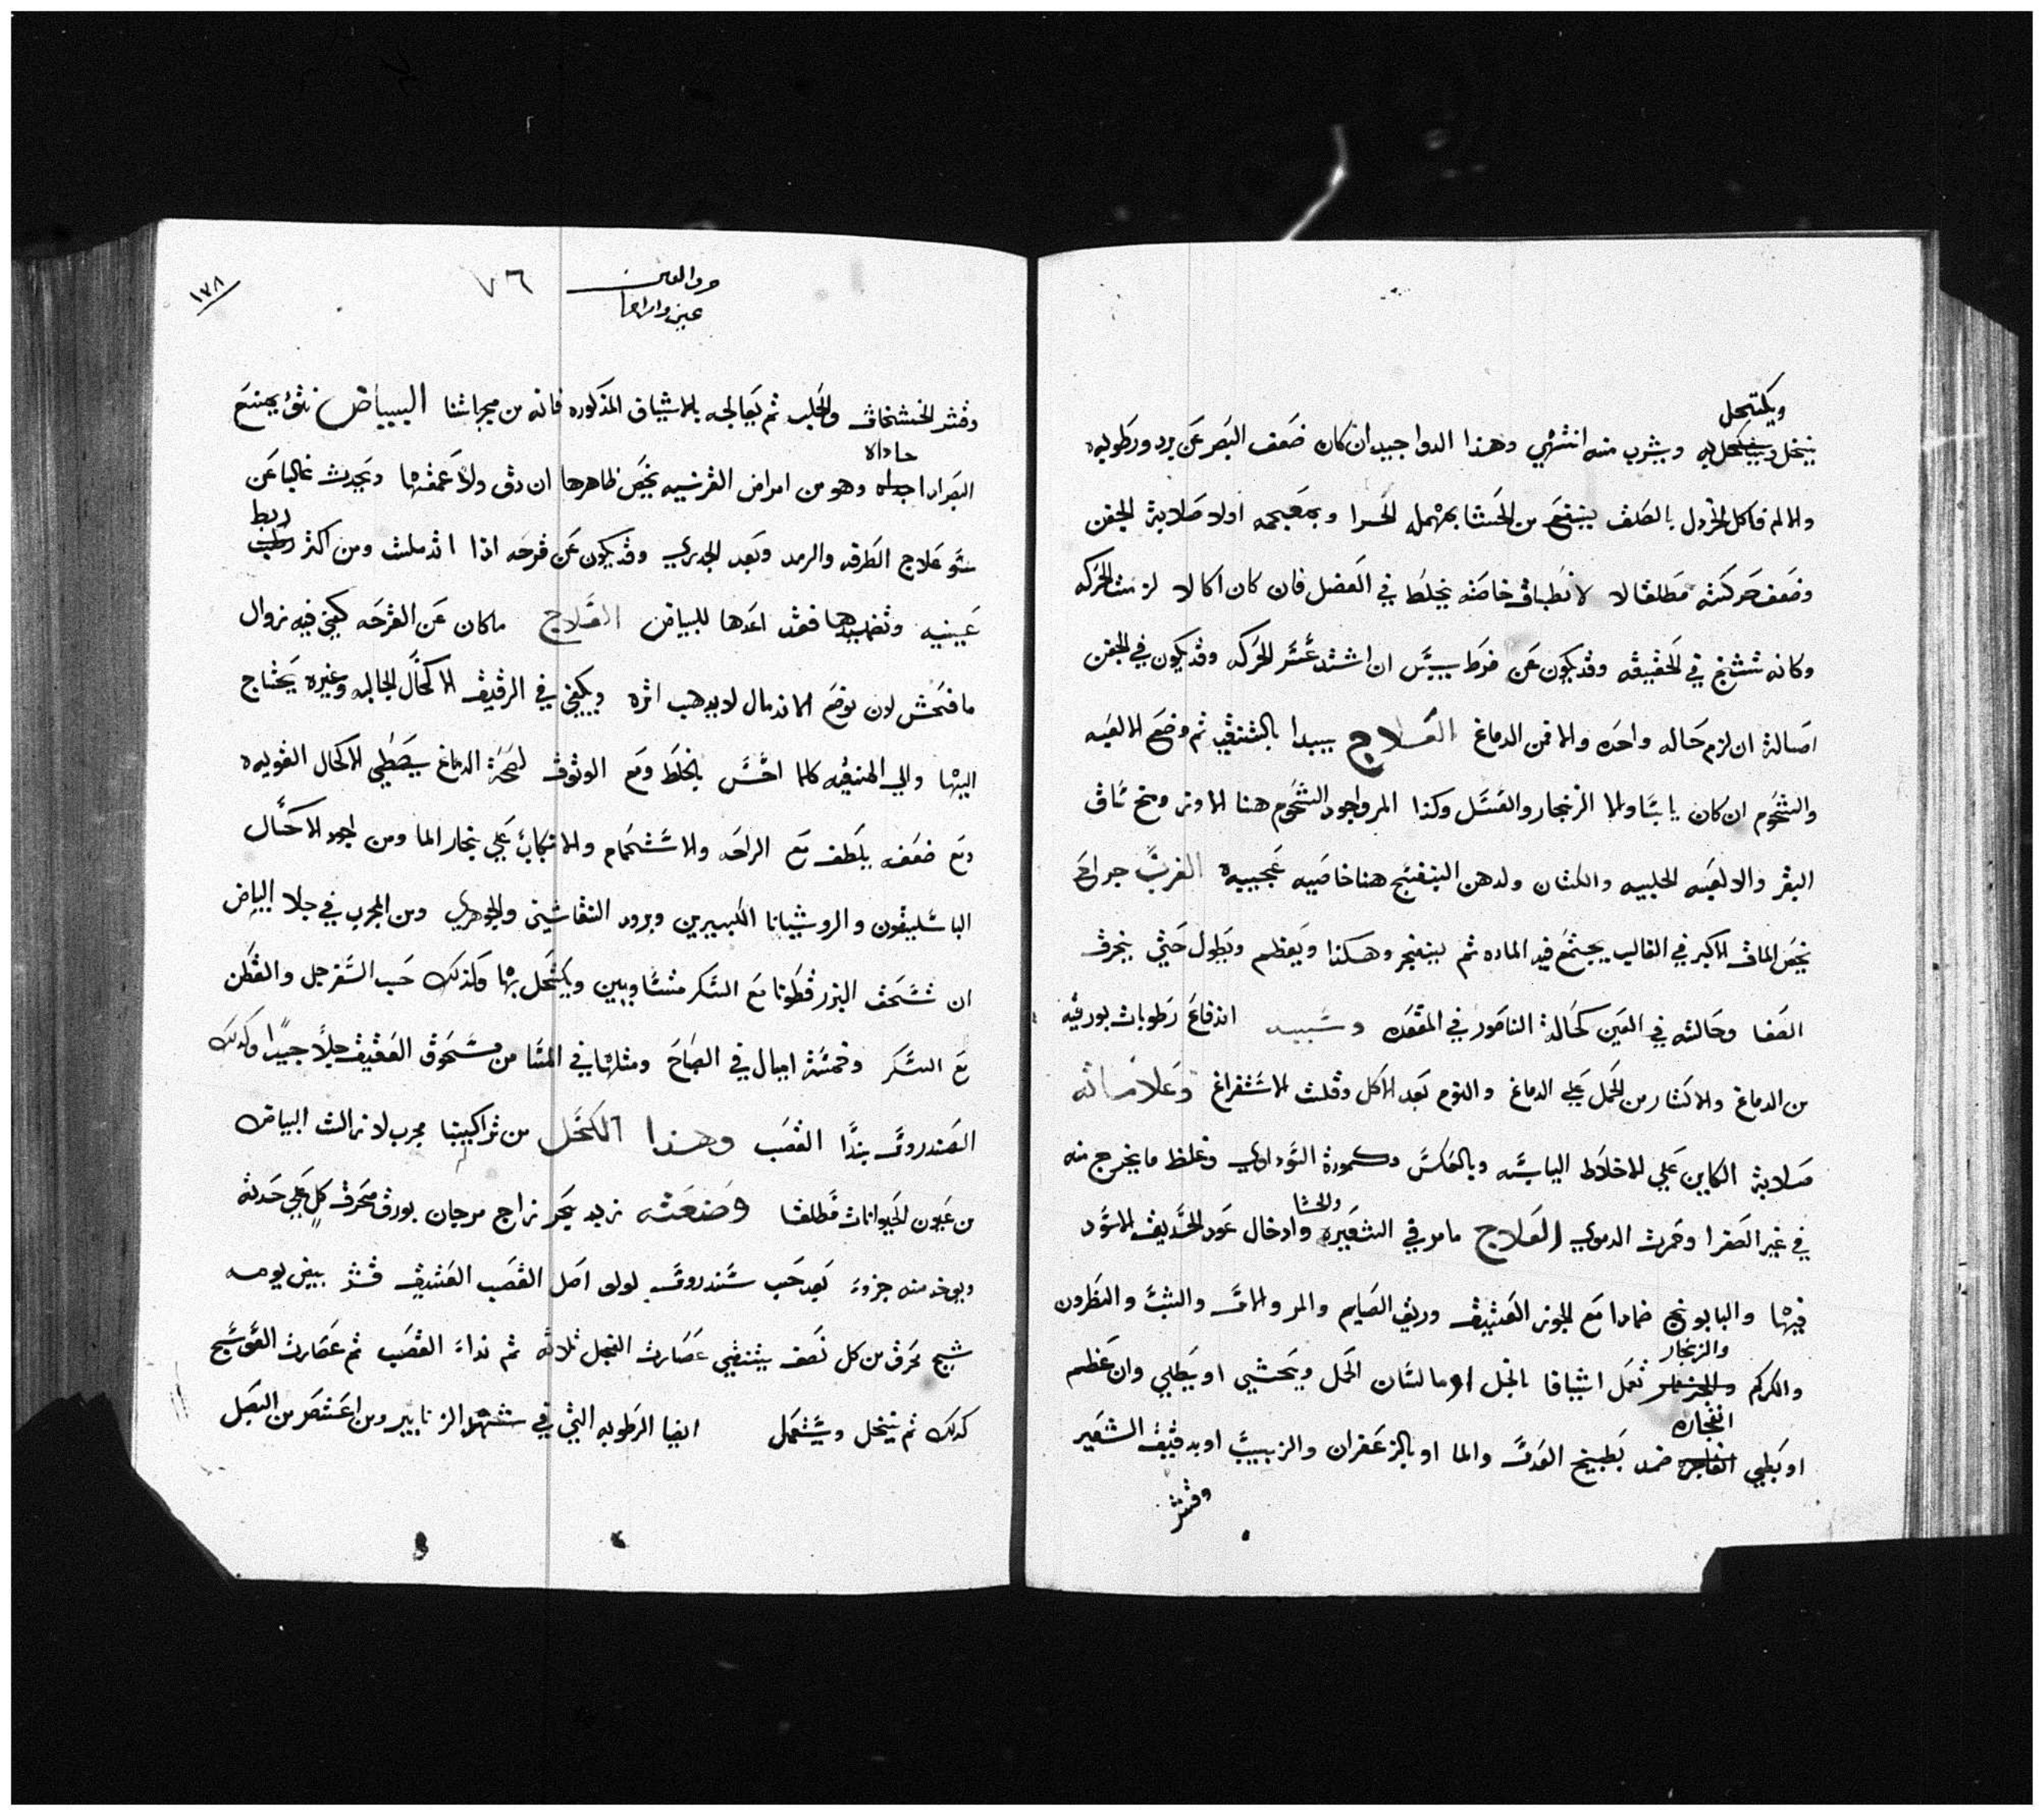 ويكتحل
ينخل ويكتحل به ويشرب منه انتهي وهذا الدوا جيد ان كان ضعف البصر عن برد ورطوبه
والا لم فاكل الخردل بالصلف ينتفع من الحسا بمهمل الحسرا وبمعجمه اولا صلابة الجفن
وضعف حركته مطلقا لا لانطباق خاصة بخلط في العضل فان كان اكالا لزمت الحركه
وكانه تشنج في الحقيقه وقد يكون عن فرط يبس ان اشتد عسر الحركه وقد يكون في الجفن
اصالة ان لزم حاله واحده والا فمن الدماغ العلاج يبدا بالتنقيه ثم وضع الالعبه
والشحوم ان كان يابسا والا الزنجار والعسل وكذا المر واجود الشحوم هنا الاوز ومخ ساق
البقر والالعبه الحلبه والكتان ولدهن البنفسج هنا خاصيه عجيبه الغرب جراح
يخص الماق الاكبر في الغالب يجتمع فيه الماده ثم ينفجر وهكذا ويعظم ويطول حتي ينخرق
الصفا وحالته في العين كحالة الناصور في المقعده وسببه اندفاع رطوبات بورقيه
من الدماغ والاكثار من الحمل علي الدماغ والنوم بعد الاكل وقلت الاستفراغ وعلاماته
صلابة الكاين علي الاخلاط اليابسه وبالعكس وكمودة السوداوي وغلظ ما يخرج منه
في غير الصفرا وحمرت الدموي العلاج ما مر في الشعيره وادخال عود الخريق الاسود
والحسا
فيها والبابونج ضمادا مع الجوز العتيق وريق الصايم والمر والماق والشب والنطرون
والزنجار
والكركم تعمل اشيافا بالخل او ما لسان الحمل ويحشي او يطلي وان عظم
انفجاره
او بطي ضمد بطبيخ العدس والما او بالزعفران والزبيب او بدقيق الشعير
وقشر
حرف العين
عين وامراضها
٧٦
١٧٨
وقشر الخشخاش والحلبه ثم يعالجه بالاشياف المذكوره فانه من مجرباتنا البياض نتؤ يمنع
حاذاه
البصر اذا وهو من امراض القرنيه يخص ظاهرها ان دق ولا عمقها ويحدث غالبا عن
سو علاج الطرفه والرمد وبعد الجدري وقد يكون عن قرحه اذا اندملت ومن اكثر ربط
عينيه وتضميدها فقد اعدها للبياض العلاج ما كان عن القرحه يكفي فيه زوال
ما فحش لان توضع الاندمال لا يدهب اثره ويكفي في الرقيق الاكحال الجاليه وغيره يحتاج
اليها والي التنقيه كلما احس بالخلط ومع الوثوق لصحة الدماغ يعطي الاكحال القويه
ومع ضعفه يلطف مع الراحه والاستحمام والانكباب علي بخار الما ومن اجود الاكحال
الباسليقون والروشنايا الكبيرين وبرود النقاشين والجوهري ومن المجرب في جلا البياض
ان تسحق البزرقطونا مع السكر متساويين ويكتحل بها وكذلك حب السفرجل والقطن
مع السكر وخمسة اميال في الصباح ومثلها في المسا من مسحوق العقيق جلا جيدا وكذلك
الصندروس بندا القصب وهذا الكحل من تراكيبنا مجرب لازالت البياض
من عيون الحيوانات مطلقا وصنعته زبد بحر زاج مرجان بورق محرق كل علي حدته
ويوخد منه جزو بعد حب سندروس لولو اصل القصب العتيق قشر بيض يومه
شيح محرق من كل نصف يتنقي عصارت الفجل ثلاثه ثم نداء القصب ثم عصارت العوسج
كدلك ثم ينخل ويستعمل ايضا الرطوبه التي في شهد الزنابير ومن اعتصر من البصل